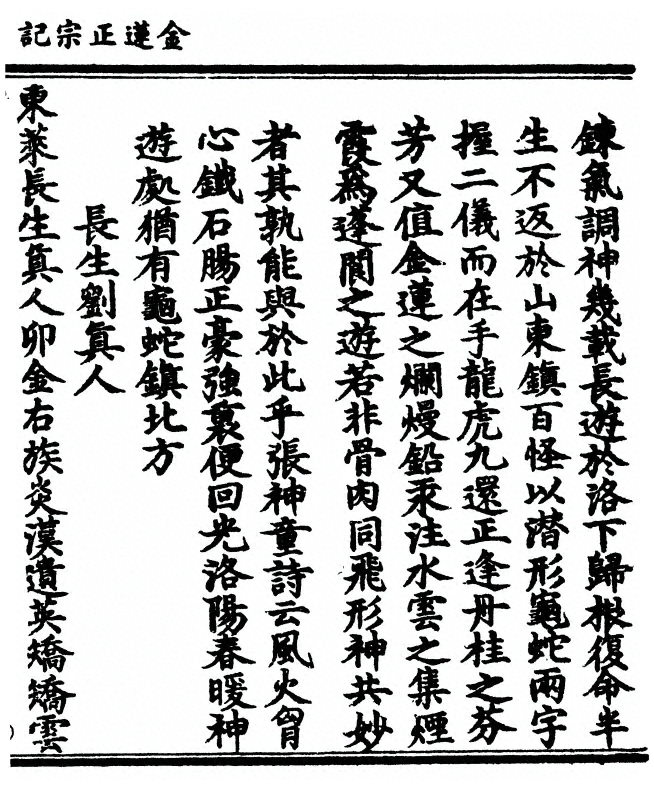 金蓮正宗記
鍊氣調神幾載長遊於洛下歸根復命半
生不返於山東鎭百怪以潛形龜蛇兩字
握二儀而在手龍虎九還正逢丹桂之芬
芳又值金蓮之爛熳鉛汞注水雲之集煙
霞爲蓬閬之遊若非骨肉同飛形神共妙
者其孰能與於此乎張神童詩云風火胷
心鐵石腸正豪強裏便回光洛陽春暖神
遊處猶有龜蛇鎮北方
長生劉眞人
東萊長生眞人卯金右族炎漢遺英矯矯雲